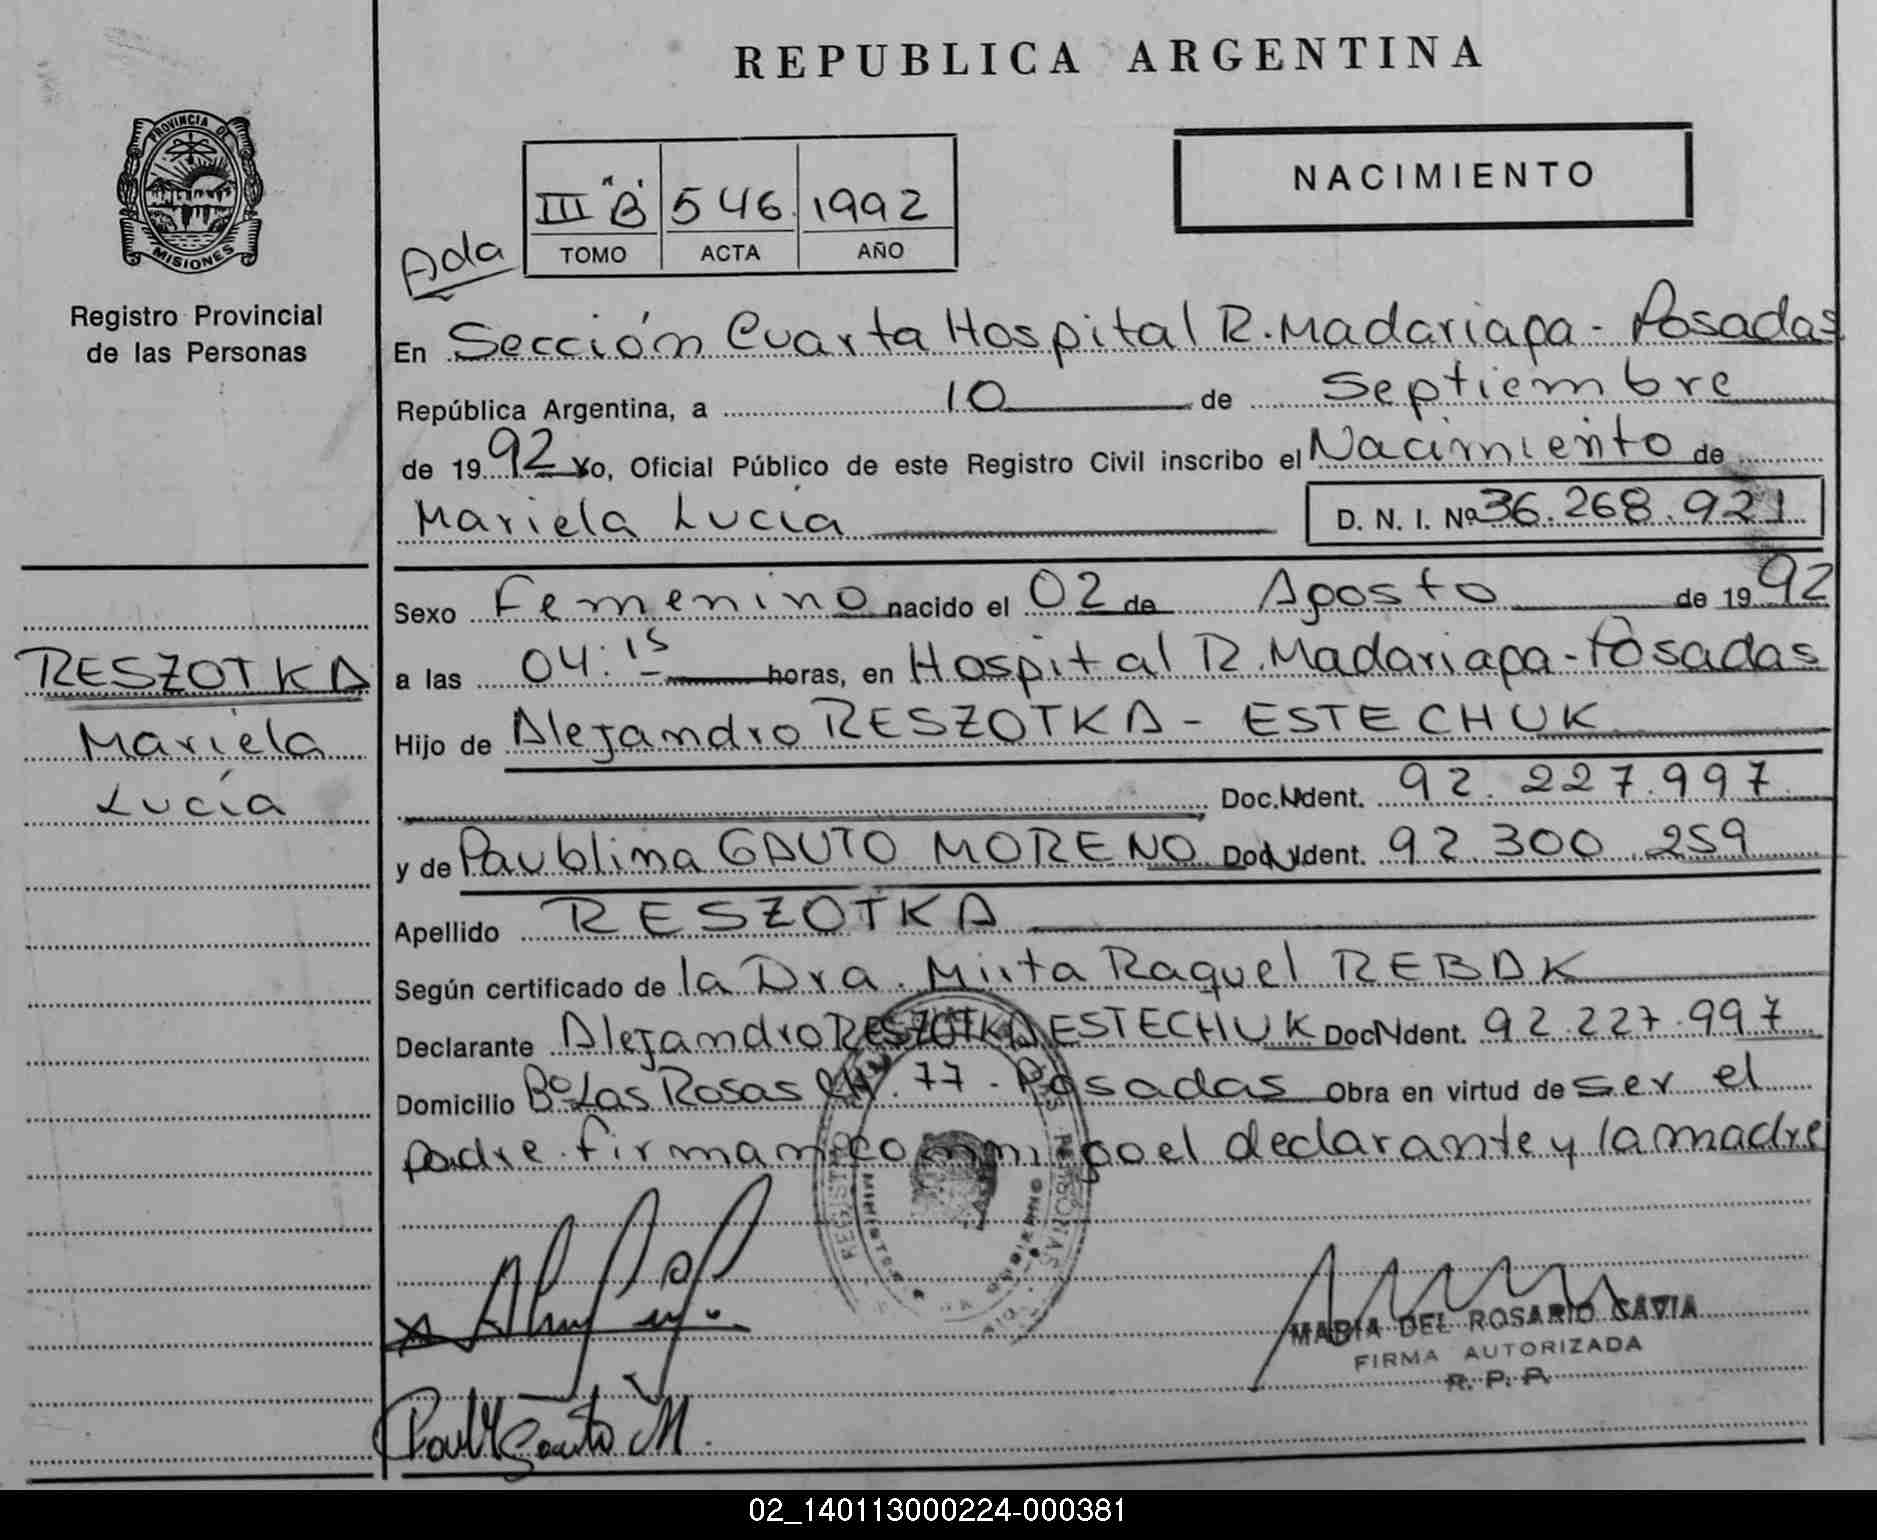 REPUBLICA ARGENTINA
PROVINCIA DE
MISIONES
Registro Provincial
de las Personas
NACIMIENTO
III "B" 546 1992
TOMO ACTA AÑO
Ada
En Sección Cuarta Hospital R. Madariaga - Posadas
República Argentina, a 10 de Septiembre
de 1992 Yo, Oficial Público de este Registro Civil inscribo el Nacimiento de
Mariela Lucía D. N. I. Nº 36.268.921
Sexo Femenino nacido el 02 de Agosto de 1992
RESZOTKA
Mariela
Lucía
a las 04:15 horas, en Hospital R. Madariaga - Posadas
Hijo de Alejandro RESZOTKA - ESTECHUK
Doc. Ident. 92.227.997
y de Paublina GAUTO MORENO Doc. Ident. 92.300.259
Apellido RESZOTKA
Según certificado de la Dra. Mirta Raquel REBAK
Declarante Alejandro RESZOTKA ESTECHUK Doc. Ident. 92.227.997
Domicilio Bº Las Rosas CH. 77 - Posadas Obra en virtud de ser el
padre. firman conmigo el declarante y la madre
MARIA DEL ROSARIO GAVIA
FIRMA AUTORIZADA
R. P. P.
Gauto M.
02_140113000224-000381